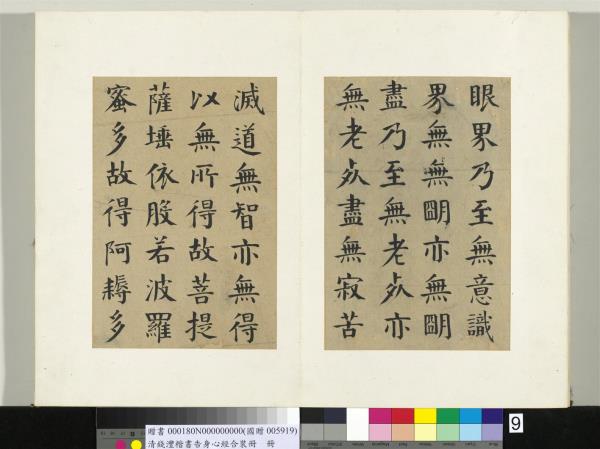 眼界乃至無意識
界無無朙亦無朙
盡乃至無老死亦
無老死盡無寂苦
滅道無智亦無得
以無所得故菩提
薩埵依般若波羅
蜜多故得阿耨多
贈書 000180N000000000(國贈 005919)
清錢灃楷書告身心經合裝冊 冊
9